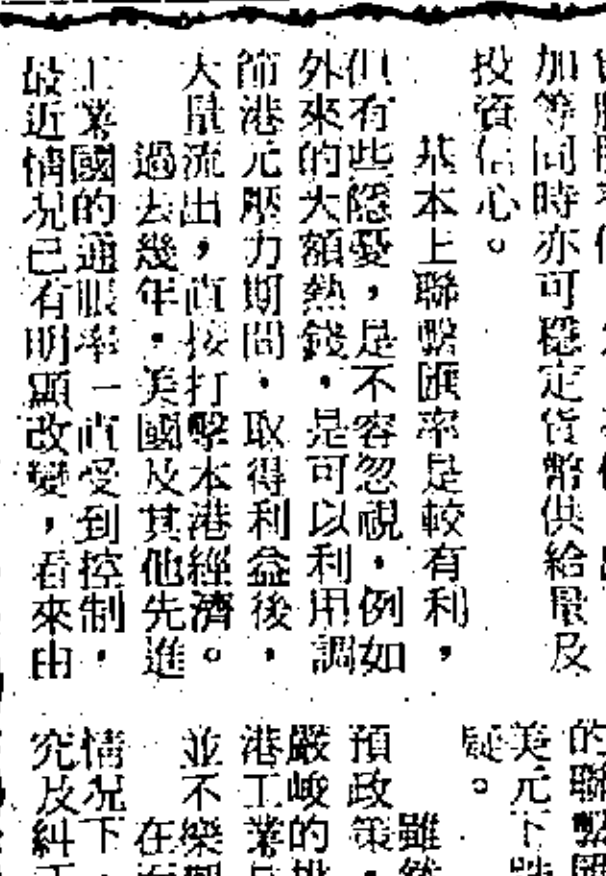 加等同時亦可穩定貨幣供給量及
投資信心。
基本上聯繫匯率是較有利，
但有些隱憂，是不容忽視，例如
外來的大額熱錢，是可以利用調
節港元壓力期間，取得利益後，
大量流出，直接打擊本港經濟。
過去幾年，美國及其他先進
工業國的通脹率一直受到控制，
最近情況已有明顯改變，看來由
的聯繫
美元下
疑。
雖然
預政策，
嚴峻的
港工業
並不樂觀
在
情況下
究及糾正